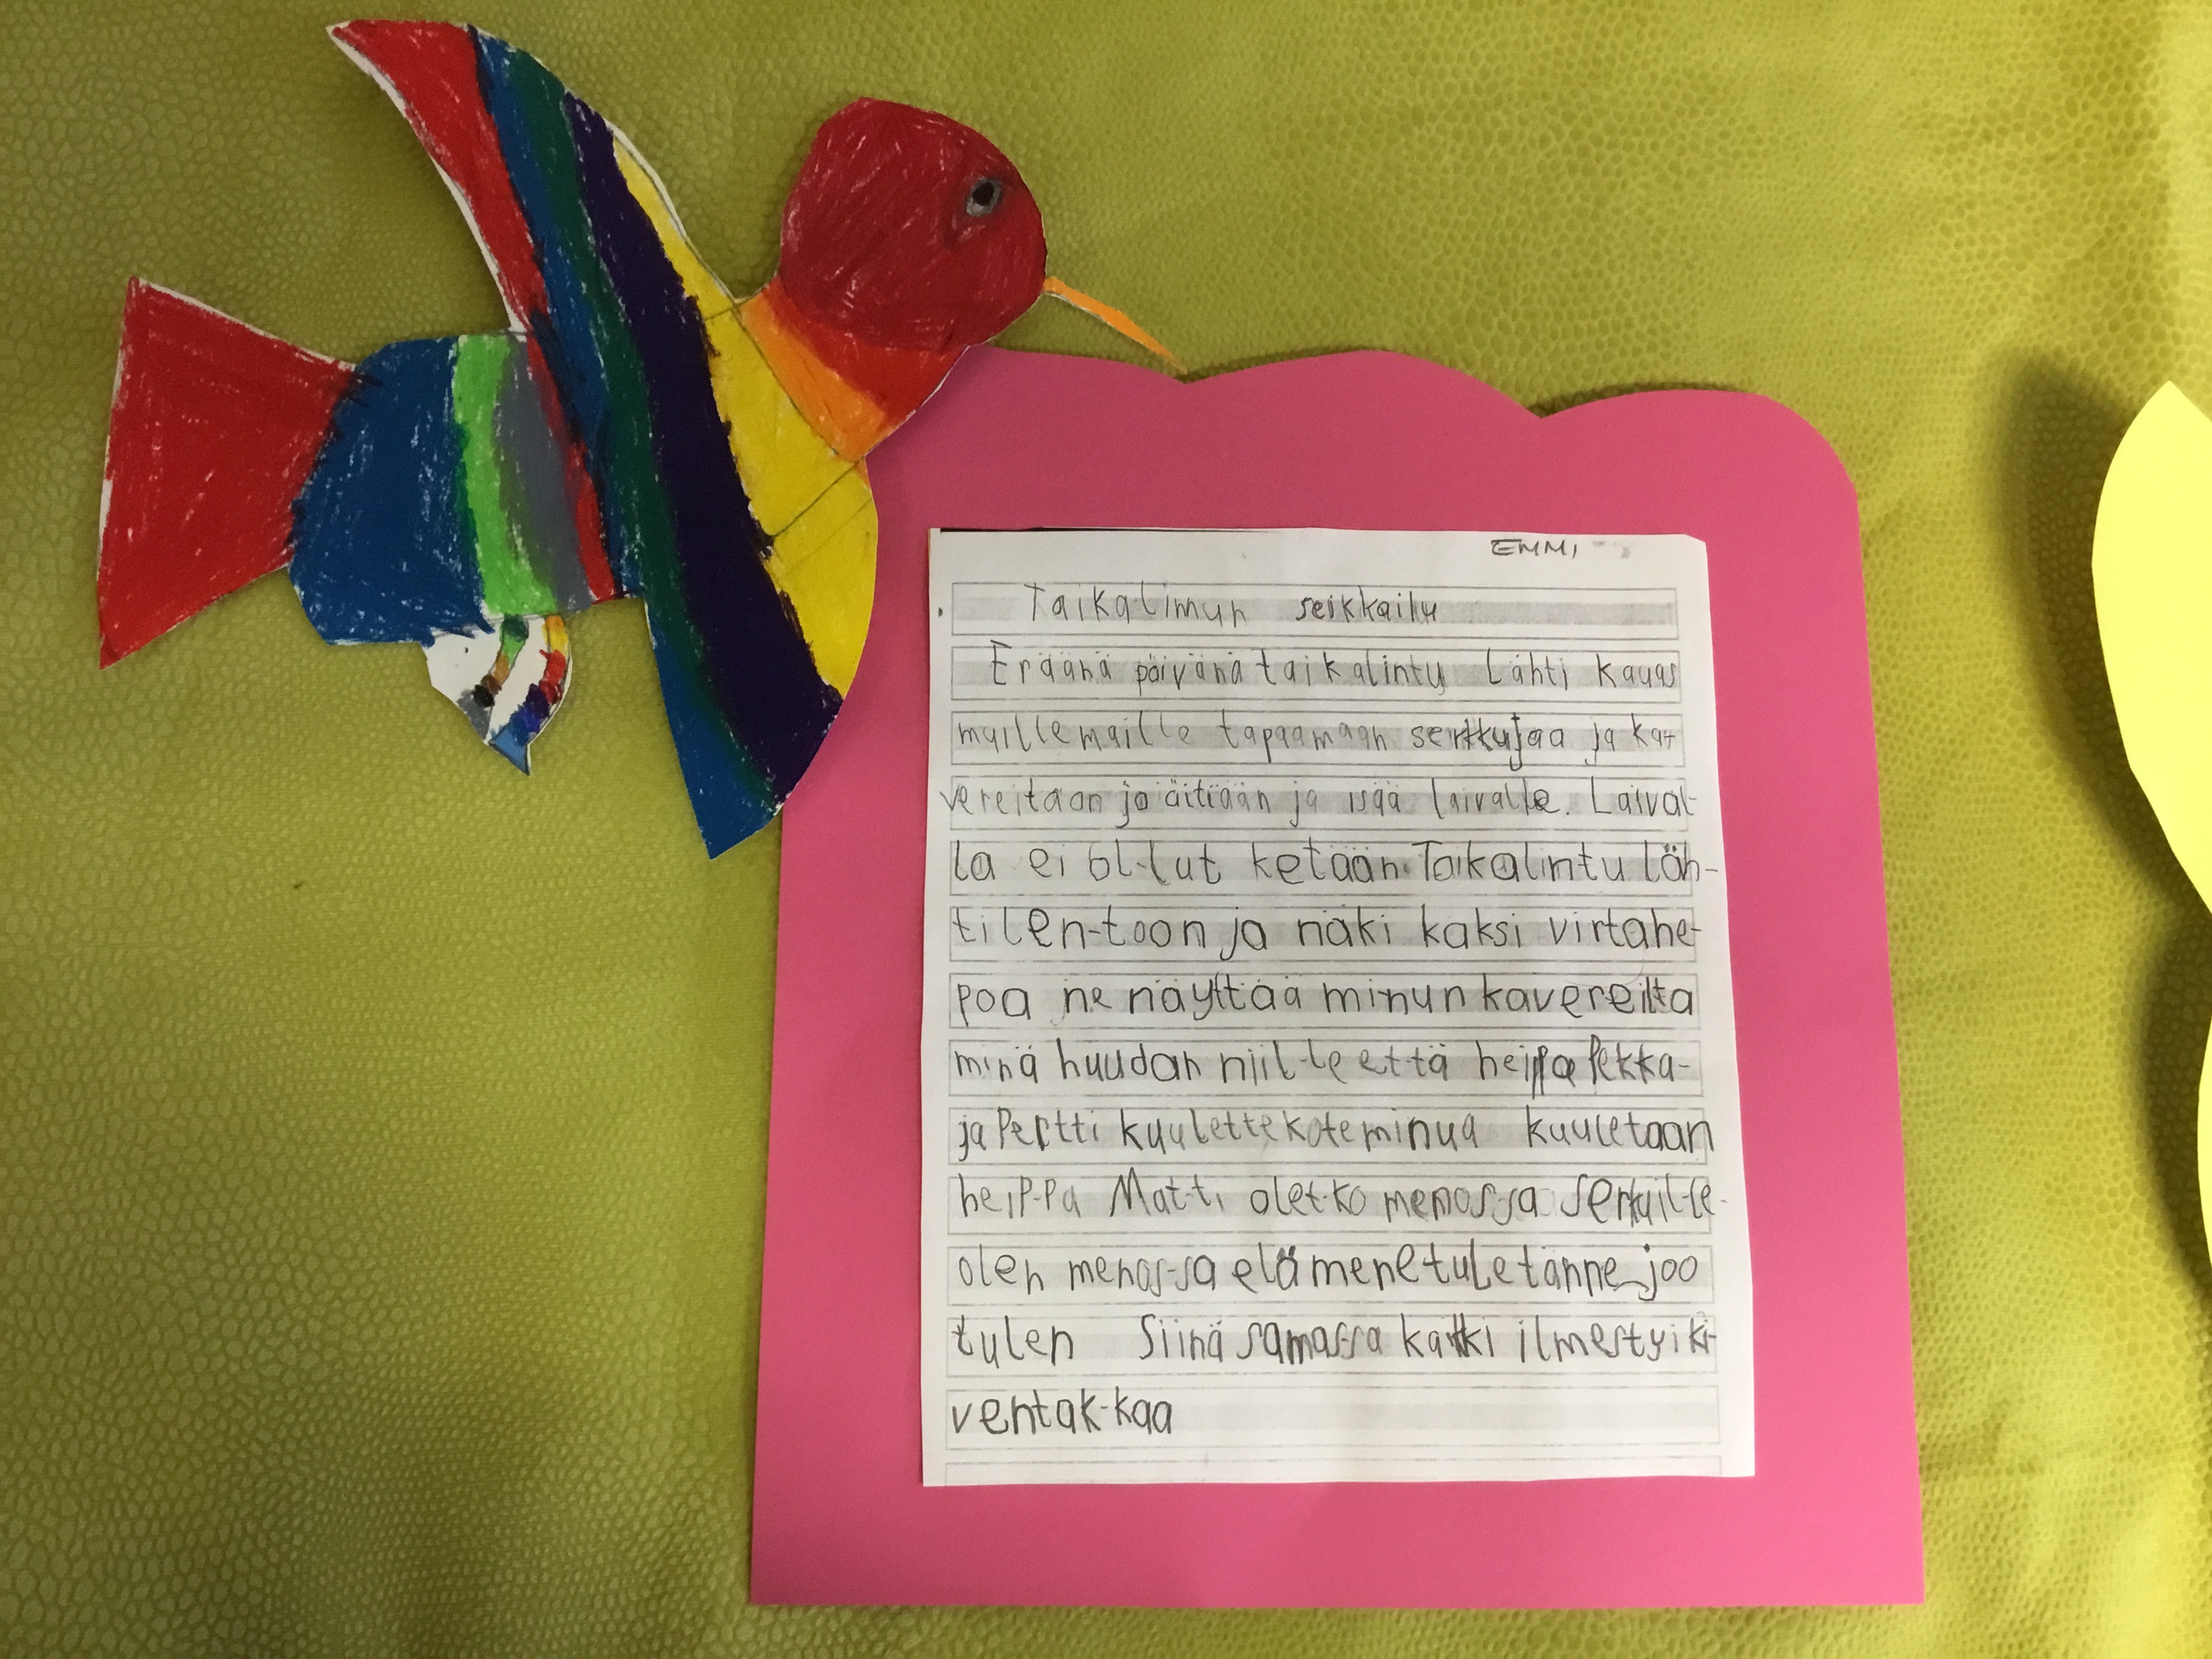 EMMI
Taikalinun seikkailu
Eräänä päivänä taikalintu Lähti kauas
muillemaille tapaamaan serkkujaa ja ka-
vereitaan ja äitiään ja isää laivalle. Laival-
la ei ol-lut ketään. Taikalintu läh-
ti len-toon ja näki kaksi virtahe-
poa ne näyttää minun kavereilta
minä huudan niil-le että heippa Pekka-
ja Pertti kuulettekote minua kuuletaan
heip-pa Mat-ti olet-ko menos-sa serkuil-le-
olen menos-sa elä mene tule tänne joo
tulen Siinä samas-sa kaikki ilmestyi ki-
ventak-kaa